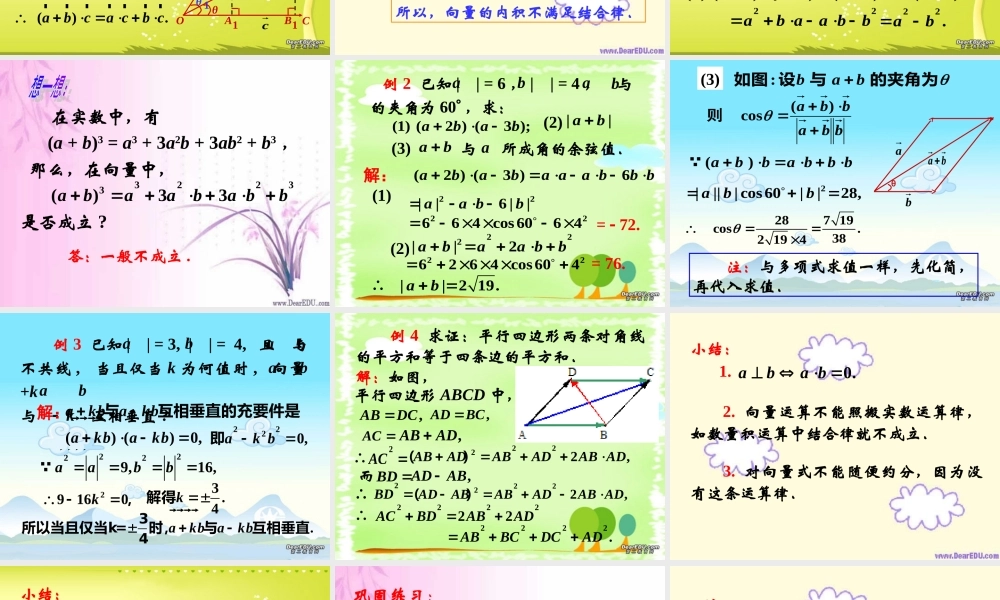 ∴ (a + b)·c = a·c + b·c.
O θ A₁ B₁ C c
所以，向量的内积不满足结合律．
www.DearEDU.com
= a² + b·a − a·b − b² = a² − b².
想一想：
在实数中，有
(a + b)3 = a3 + 3a2b + 3ab2 + b3，
那么，在向量中，
(a b)3 a3 3a2 b 3a b2 b3
是否成立？
答：一般不成立．
www.DearEDU.com
例 2 已知| | = 6，b | | = 4 a b与
的夹角为 60°，求：
(1) (a 2b) (a 3b); (2) | a b |
(3) a b 与 a 所成角的余弦值．
解： (a 2b) (a 3b) a a a b 6b b
(1) =| a |2 a b 6 | b |2
62 6 4 cos 60 6 42 = − 72.
(2) | a b |2 a2 2a b b2
62 2 6 4 cos 60 42 = 76.
∴ | a b | 2 19.
(3) 如图:设b 与 a b 的夹角为θ
则 cosθ (a b) b
a b b
∵ (a b) b a b b b
=| a || b | cos60 | b |2 28,
∴ cosθ 28 7 19
2 19 4 38 .
a a b θ b
注：与多项式求值一样，先化简，
再代入求值．
例 3 已知a | | = 3, b | | = 4, 且 与
不共线，当且仅当 k 为何值时，向量
+k a b
互相垂直？
解：a kb与a kb互相垂直的充要件是
(a kb) (a kb) 0, 即a2 k2b2 0,
∵ a2 a2 9, b2 b2 16,
∴ 9 16k2 0, 解得k 3
4 .
所以当且仅当k=±3
4 时, a kb与a kb互相垂直.
例 4 求证：平行四边形两条对角线
的平方和等于四条边的平方和．
解：如图，
平行四边形 ABCD 中，
AB DC, AD BC,
AC AB AD,
D C A B
∴ AC2 (AB AD)2 AB2 AD2 2AB AD,
而 BD AD AB,
∴ BD2 (AD AB)2 AB2 AD2 2AB AD,
∴ AC2 BD2 2AB2 2AD2
AB2 BC2 DC2 AD2.
小结：
1. a ⊥ b ⇔ a b 0.
2. 向量运算不能照搬实数运算律，
如数量积运算中结合律就不成立．
3. 对向量式不能随便约分，因为没
有这条运算律．
www.DearEDU.com
小结：
巩固练习：